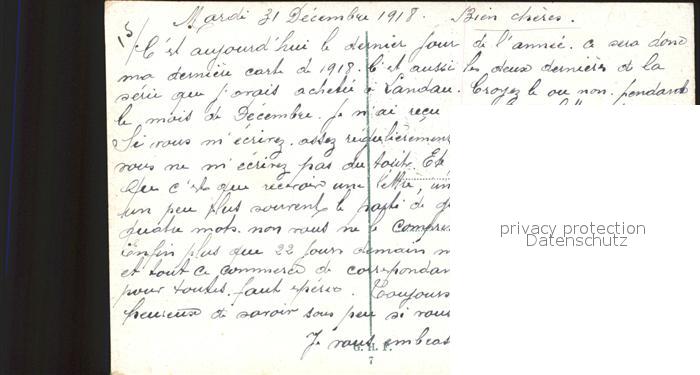 Mardi 31 Décembre 1918. Bien chères.
15/ C'est aujourd'hui le dernier jour de l'année. ce sera donc
ma dernière carte de 1918. C'est aussi les deux dernières de la
série que j'avais acheté à Landau. Croyez le ou non. pendant
le mois de Décembre. Je n'ai reçu
Si vous m'écrivez. assez régulièrement
vous ne m'écrivez pas du tout. Et
que c'est que recevoir une lettre, un
un peu plus souvent le
quatre mots. non vous ne le compre
Enfin plus que 22 jours demain
et tout ce commerce de correspondan
pour toutes. faut espérer. Toujours
heureux de savoir sous peu si vous
Je vous embras
G. H. P.
7
privacy protection
Datenschutz